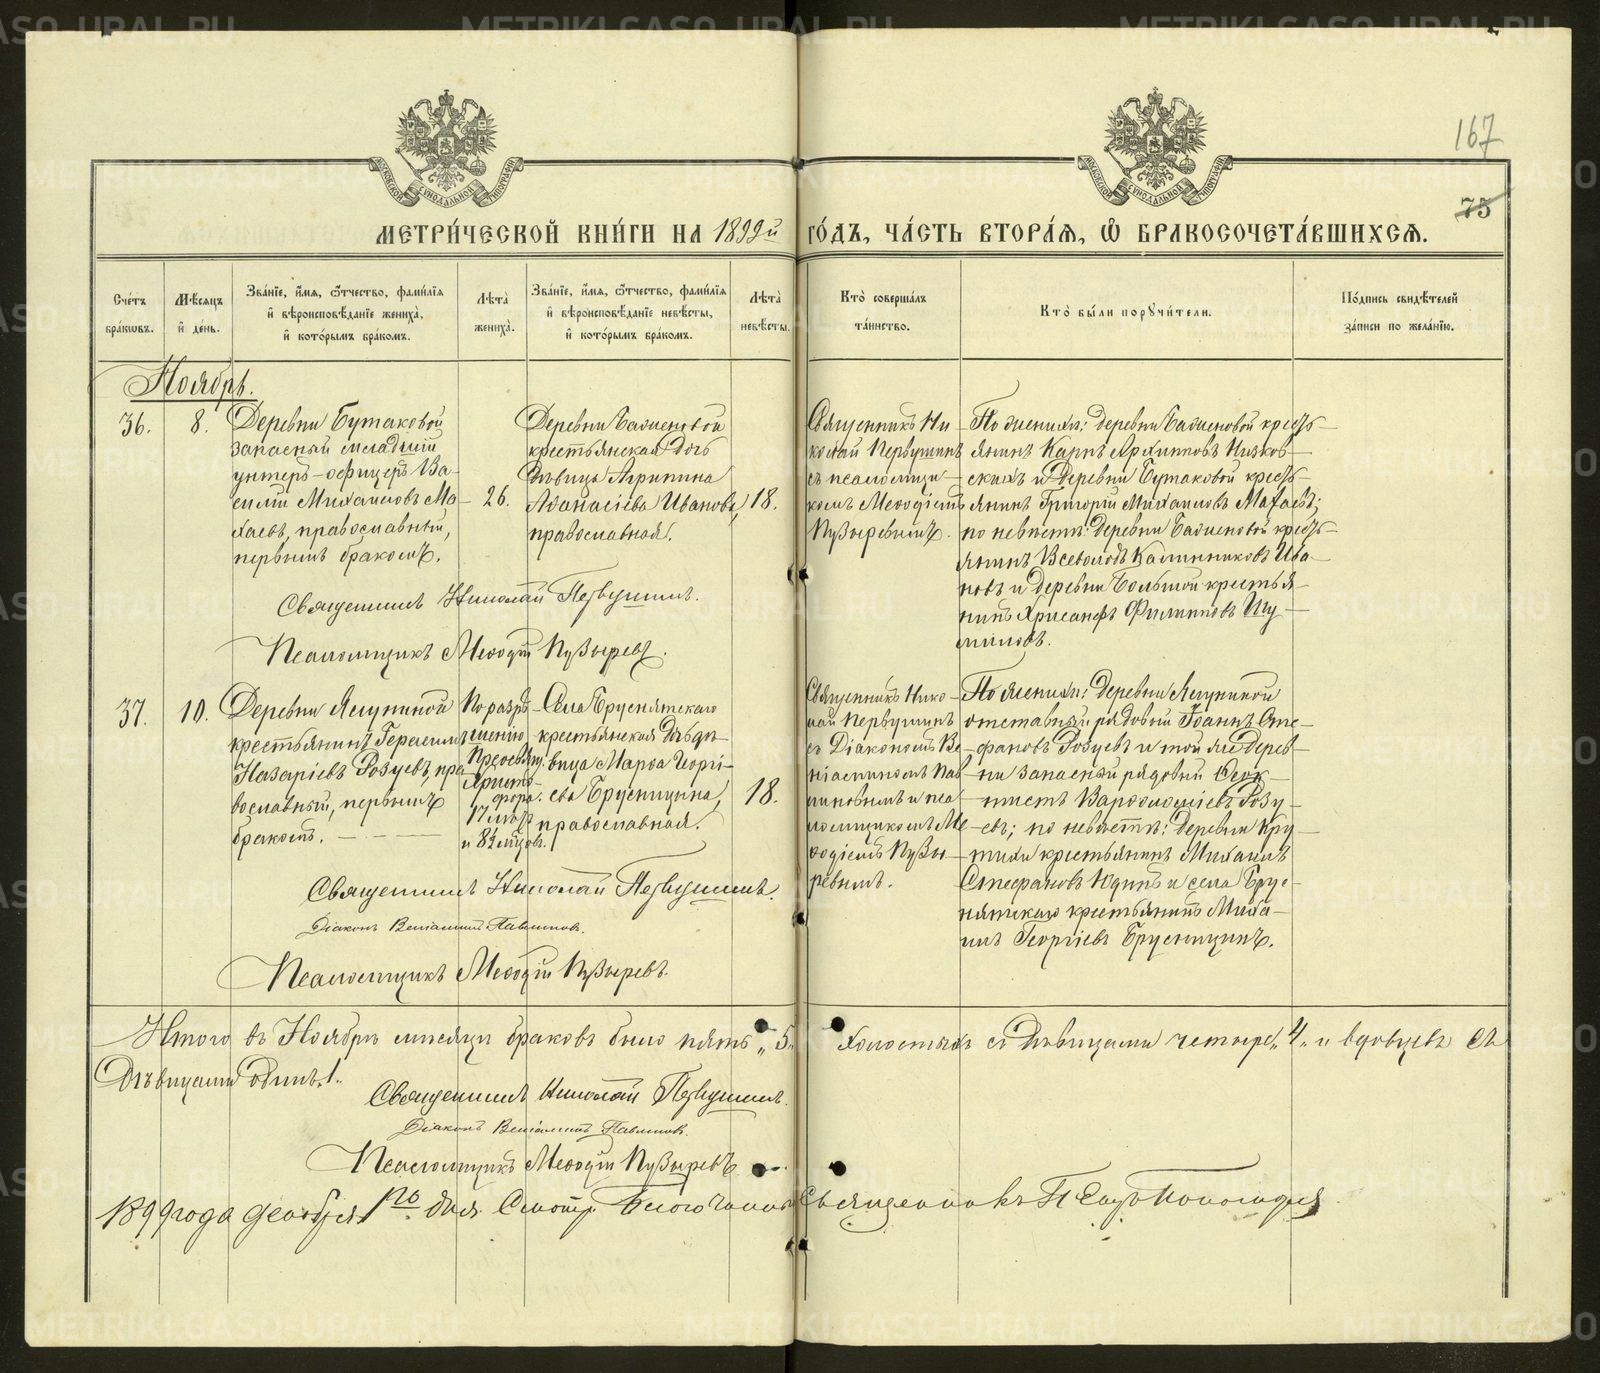 167
75
МЕТРИ́ЧЕСКОЙ КНИ́ГИ НА 1899й ГО́ДЪ, ЧА́СТЬ ВТОРА́Я, Ѡ БРАКОСОЧЕТА́ВШИХСЯ.
Сче́тъ бра́ковъ.
Мѣ́сяцъ и҆ де́нь.
Зва́нїе, и҆́мя, ѻ҆́тчество, фами́лїя и҆ вѣроисповѣ́данїе жениха̀, и҆ кото́рымъ бра́комъ.
Лѣта̀ жениха̀.
Зва́нїе, и҆́мя, ѻ҆́тчество, фами́лїя и҆ вѣроисповѣ́данїе невѣ́сты, и҆ кото́рымъ бра́комъ.
Лѣта̀ невѣ́сты.
Кто̀ соверша́лъ та́инство.
Кто̀ бы́ли поручи́тели.
По́дпись свидѣ́телей за́писи по жела́нїю.
Ноябрь.
36.
8.
Деревни Бутаковой
запасный младшій
унтеръ-офицеръ Ва-
силій Михаиловъ Ма-
хаевъ, православный,
первымъ бракомъ.
26.
Деревни
крестьянская дочь
дѣвица Агрипина
Аѳанасіева Иванова,
православная.
18.
Священникъ Ни
колай Первушинъ
съ псаломщи-
комъ Меѳодіемъ
Пузыревымъ.
По женихѣ: деревни кресть-
янинъ Карпъ Архиповъ Низков-
скихъ и деревни Бутаковой кресть-
янинъ Григорій Михаиловъ Махаевъ;
по невѣстѣ: деревни кресть-
янинъ Всеволодъ Калинниковъ Ива-
новъ и деревни Большой крестья-
нинъ Хрисанфъ Филипповъ Шу-
миловъ.
Священникъ Николай Первушинъ.
Псаломщикъ Меѳодій Пузыревъ.
37.
10.
Деревни Ягуниной
крестьянинъ Герасимъ
Назаріевъ Розуевъ, пра
вославный, первымъ
бракомъ.
По разрѣ-
шенію
Преосвящ.
Христо-
фора.
17 лѣтъ
и 8½ мѣсцовъ.
Села Бруснятскаго
крестьянская дѣ-
вица Марѳа Георгі-
ева Брусницына,
православная.
18.
Священникъ Нико-
лай Первушинъ
съ Діакономъ Ве-
ніаминомъ Пав
линовымъ и пса
ломщикомъ Ме
ѳодіемъ Пузы-
ревымъ.
По женихѣ: деревни Ягуниной
отставной рядовой Іоаннъ Сте-
фановъ Розуевъ и той же дерев-
ни запасный рядовой Ѳеок-
тистъ Варѳоломіевъ Розу-
евъ; по невѣстѣ: деревни Кру-
тихи крестьянинъ Михаилъ
Стефановъ Юдинъ и села Брус-
нятскаго крестьянинъ Миха-
илъ Георгіевъ Брусницынъ.
Священникъ Николай Первушинъ.
Діаконъ Веніаминъ Павлиновъ.
Псаломщикъ Меѳодій Пузыревъ.
Итого въ Ноябрѣ мѣсяцѣ браковъ было пять „5„ Холостыхъ съ дѣвицами четыре „4„ и вдовцевъ съ
дѣвицами одинъ „1„
Священникъ Николай Первушинъ.
Діаконъ Веніаминъ Павлиновъ.
Псаломщикъ Меѳодій Пузыревъ.
1899 года декабря 1го дня. Смотр. Священникъ
METRIKI.GASO-URAL.RU